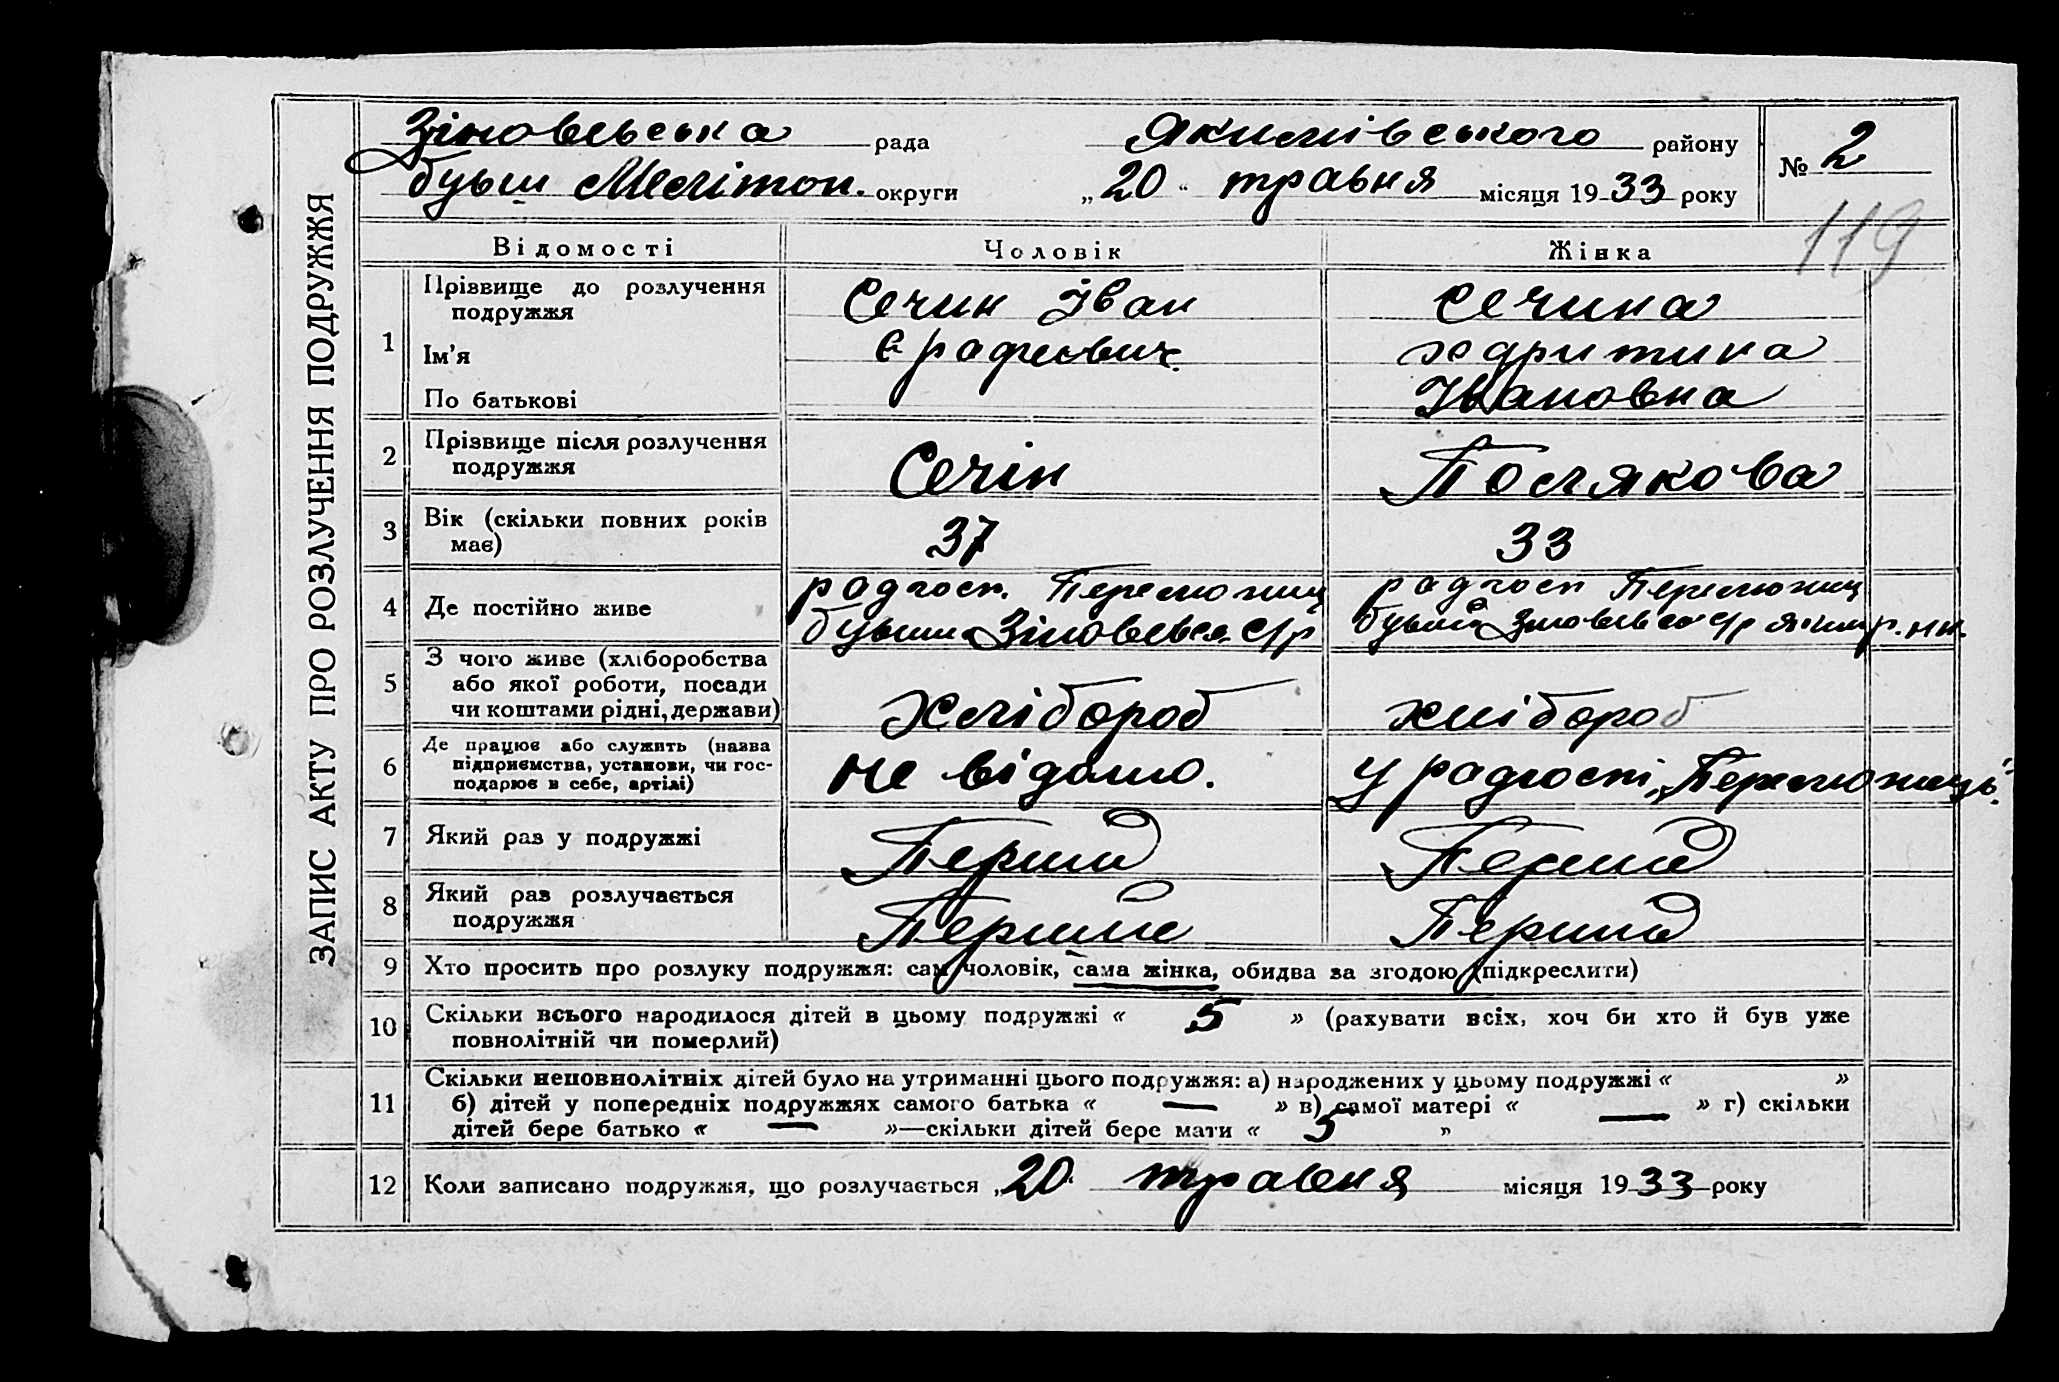 ЗАПИС АКТУ ПРО РОЗЛУЧЕННЯ ПОДРУЖЖЯ
Зіновєвська рада Якимівського району № 2
бувш Мелітоп. округи „20“ травня місяця 1933 року
119
Відомості Чоловік Жінка
1 Прізвище до розлучення подружжя Сечин Іван Сечина
Ім’я
По батькові Івановна
2 Прізвище після розлучення
подружжя Сечін Полякова
3 Вік (скільки повних років
має) 37 33
4 Де постійно живе радгосп. Переможиц радгосп Переможиц
бувша Зіновєвск. с/р бувша Зіновєвск с/р Яким р.нн.
5 З чого живе (хліборобства
або якої роботи, посади
чи коштами рідні, держави) Хлібороб хлібороб
6 Де працює або служить (назва
підприємства, установи, чи гос-
подарює в себе, артілі) не відомо. у радгоспі „Переможиць“.
7 Який раз у подружжі Перший Перший
8 Який раз розлучається
подружжя Перший Перший
9 Хто просить про розлуку подружжя: сам чоловік, сама жінка, обидва за згодою (підкреслити)
10 Скільки всього народилося дітей в цьому подружжі « 5 » (рахувати всіх, хоч би хто й був уже
повнолітній чи померлий)
11 Скільки неповнолітніх дітей було на утриманні цього подружжя: а) народжених у цьому подружжі « »
б) дітей у попередніх подружжях самого батька « — » в) самої матері « — » г) скільки
дітей бере батько « — »—скільки дітей бере мати « 5 »
12 Коли записано подружжя, що розлучається „20“ травня місяця 1933 року